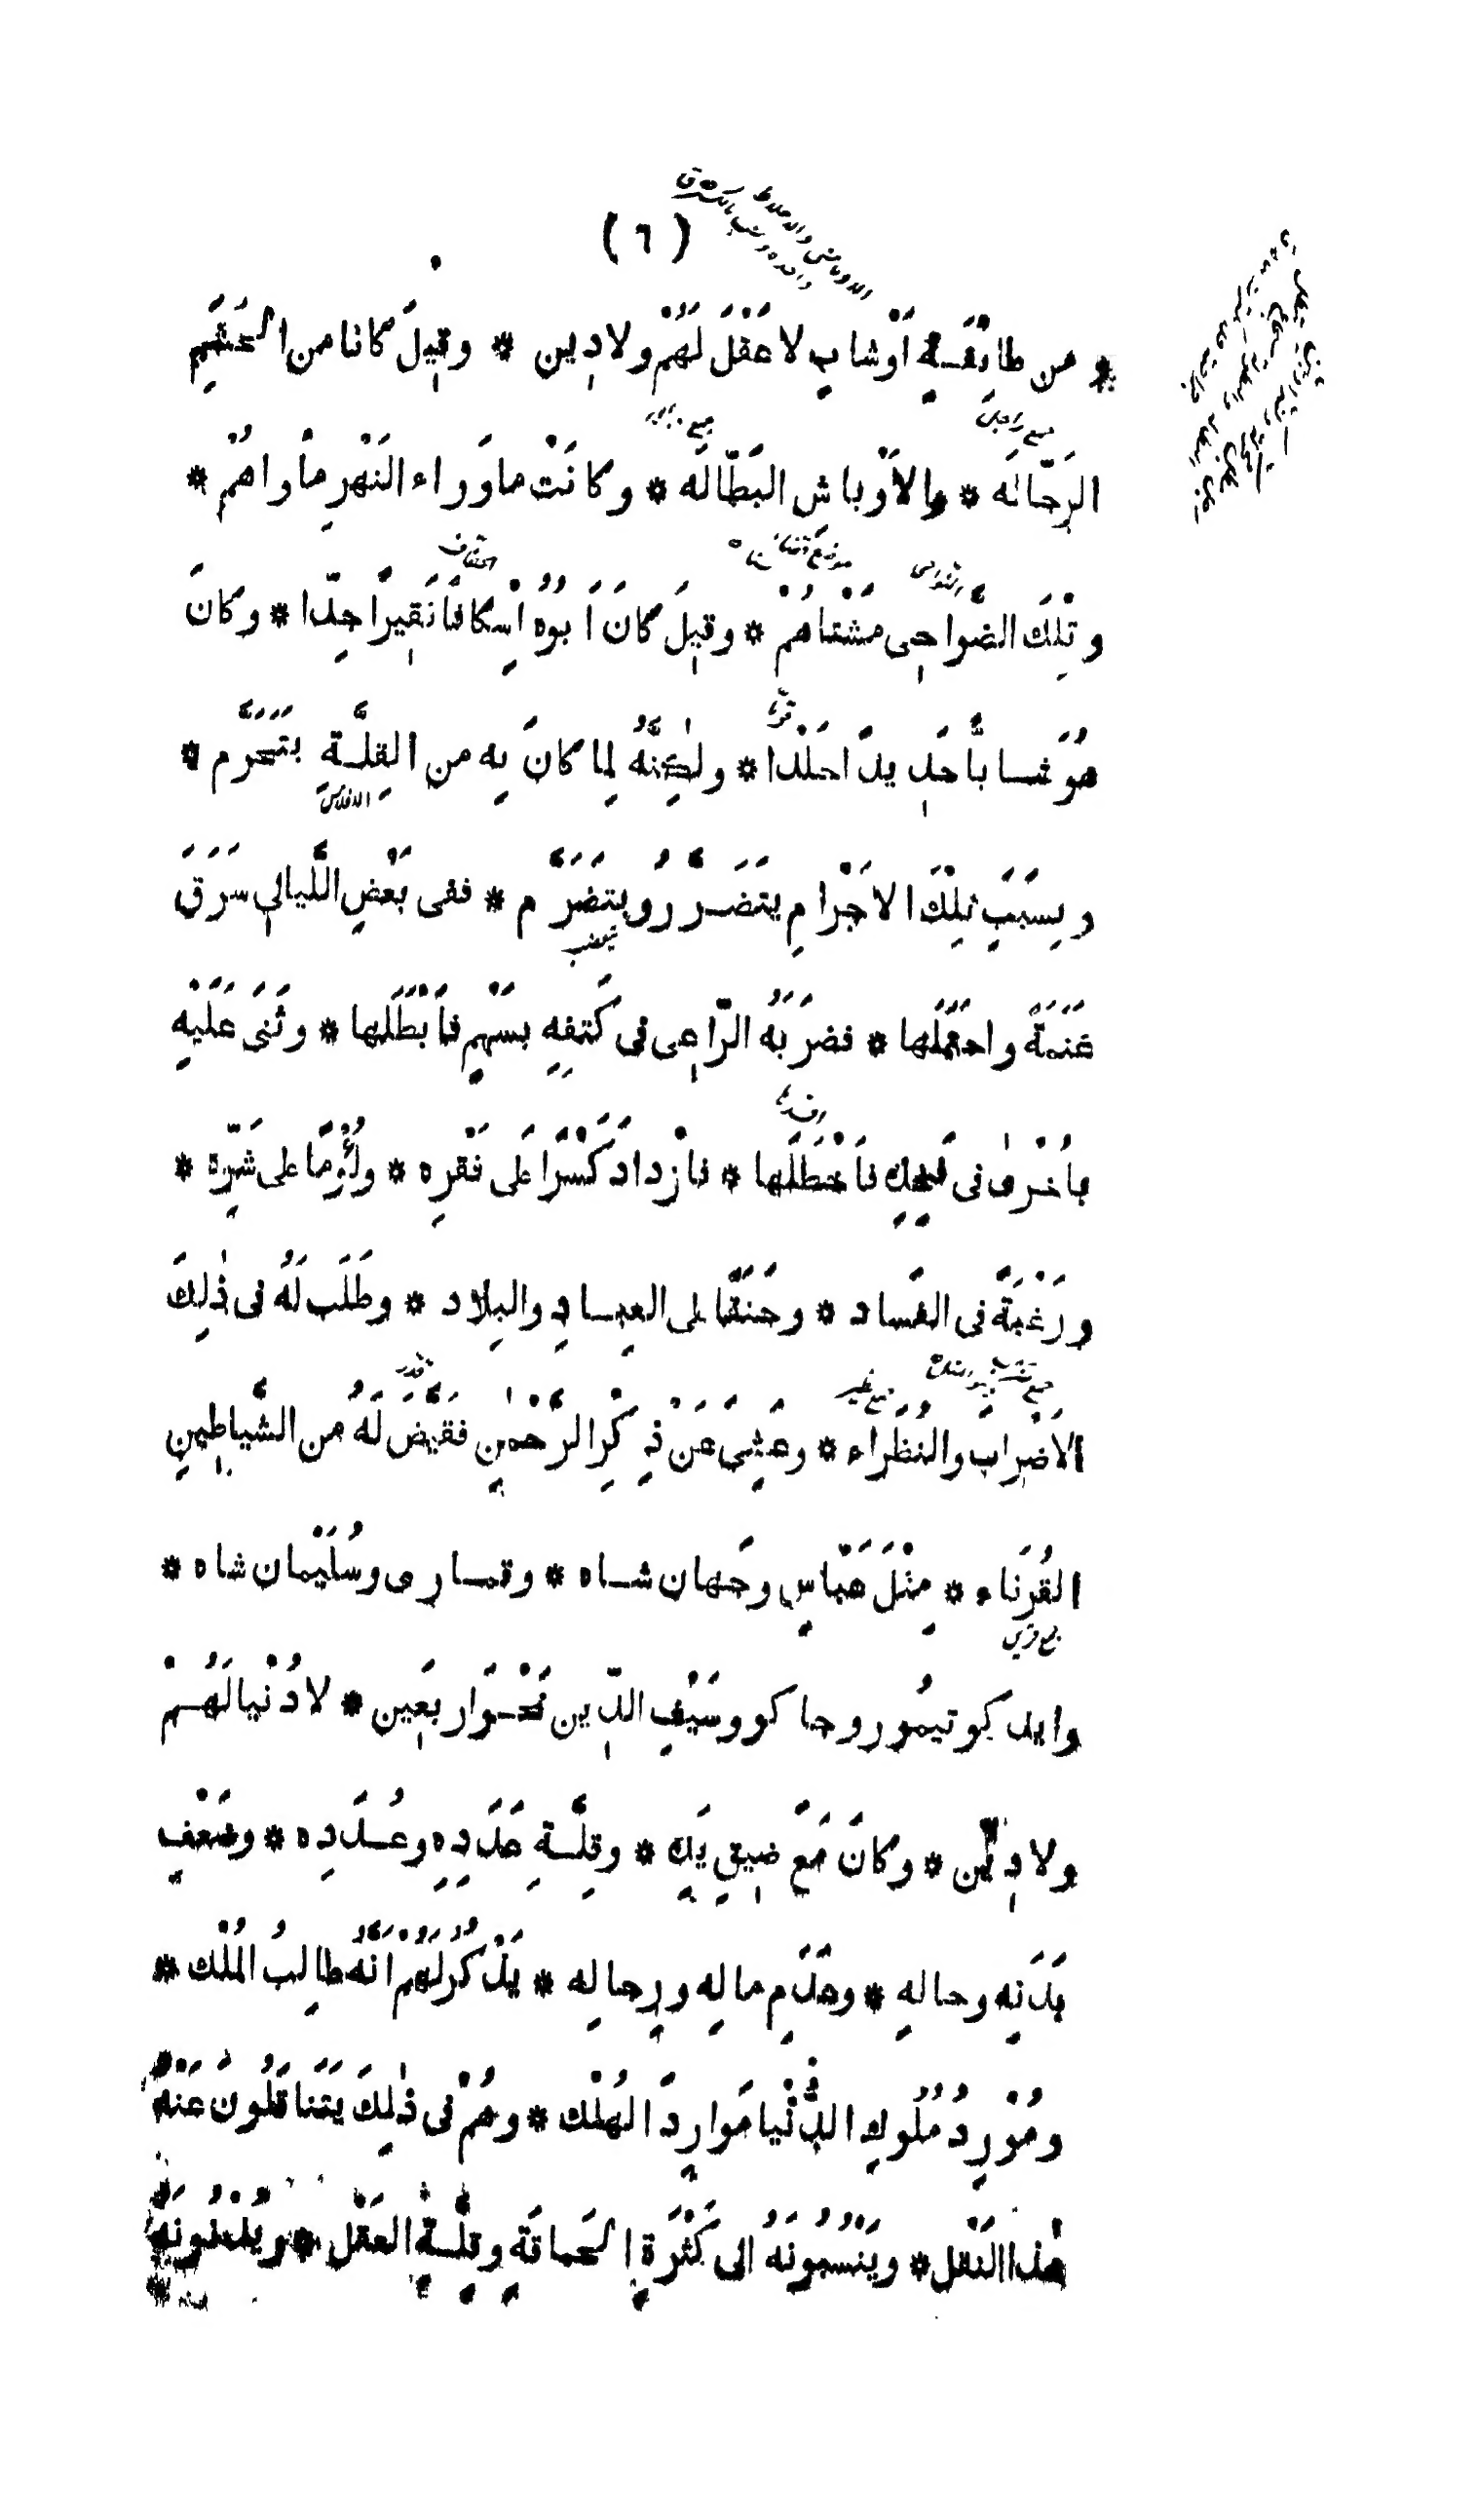 (٦)
* من طائِفَةٍ أَوْشابٍ لا عَقْلَ لَهُمْ ولا دِين * وقِيلَ كانا من الحَشَمِ
الرَحّالَه * والأَوْباشِ البَطّالَه * وكانَتْ ما وَراء النَهْرِ مأواهُمْ *
وتِلْكَ الضَّواحِى مَشْتاهُمْ * وقِيلَ كانَ أَبُوهُ إِسْكافًا فَقِيرًا جِدّا * وكانَ
جمع راجل
هُوَ شابًّا حَدِيدًا جَلْدًا * ولٰكِنَّهُ لِما كانَ بِه من القِلَّةِ يَتَجَرَّم *
وبِسَبَبِ تِلْكَ الأَجْرامِ يَتَضَرَّرُ ويتضَرَّم * ففى بَعْضِ اللَّيالى سَرَقَ
غَنَمَةً واحتَمَلَها * فضرَبَهُ الرّاعِى فى كَتِفِهِ بسَهْمٍ فأَبْطَلَها * وثَنَى عَلَيْهِ
بأُخْرىٰ فى فَخِذِهِ فأَخْطَلَها * فازْدادَ كَسْرًا عَلى فَقْرِه * ولُؤْمًا على شَرِّه *
ورَغْبَةً فى الفَساد * وحَنَقًا على العِبادِ والبِلاد * وطَلَبَ لَهُ فى ذٰلِكَ
الأَضْرابَ والنُظَراء * وعَشِىَ عَنْ ذِكْرِ الرَّحْمٰنِ فقَيَّضَ لَهُ من الشَّياطِينِ
القُرَناء * مِثْلَ عَبّاسٍ وجَهان شاه * وقمارى وسُلَيْمان شاه *
جمع قرين
وايدكو تيمُور وجاكو وسَيْفِ الدِّين نَحْوَ أربَعِين * لا دُنْيا لَهُمْ
ولا دِين * وكانَ مَعَ ضِيقِ يَدِه * وقِلَّةِ عَدَدِهِ وعُدَدِه * وضَعْفِ
بَدَنِه وحالِهِ * وعَدَمِ مالِهِ ورِجالِه * يَذْكُرُ لَهُمْ أَنَّهُ طالِبُ المُلْك *
ومُوْرِدُ مُلُوكِ الدُّنْيا مَوارِدَ الهُلْك * وهُمْ فى ذٰلِكَ يَتَناقَلُونَ عَنْهُ
هٰذا النَقْل * ويَنْسُبُونَهُ الى كَثْرَةِ الحَماقَةِ وقِلَّةِ العَقْل *